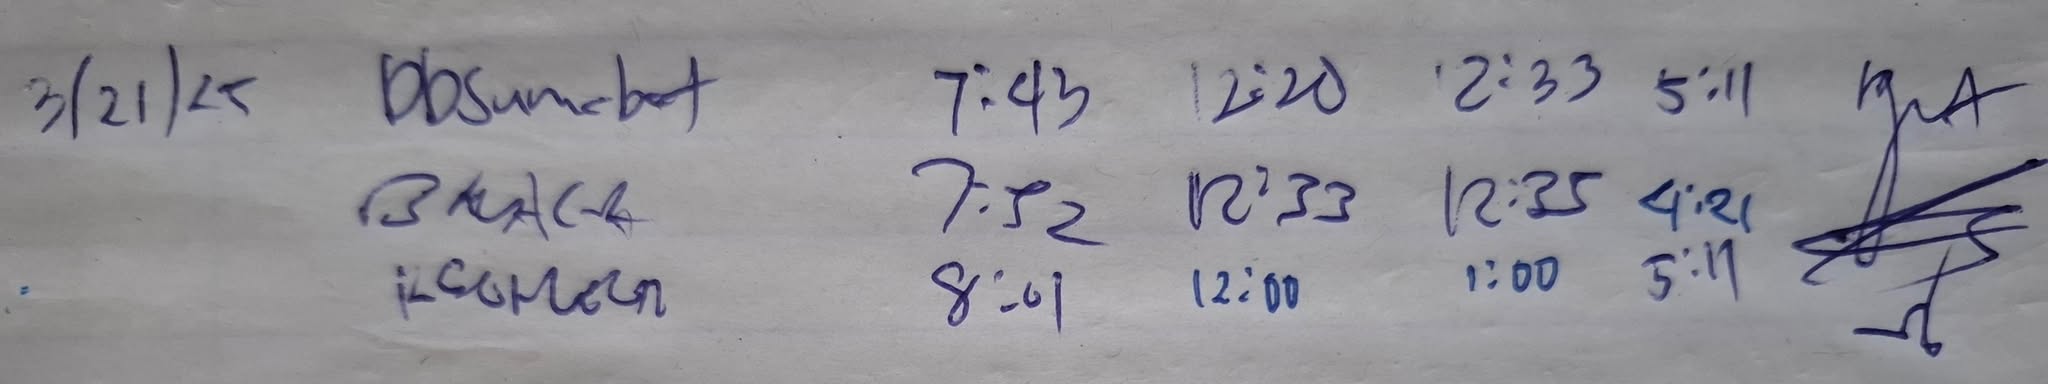 3/21/25 DbSumabat 7:43 12:20 12:33 5:11
7:52 12:33 12:35 4:21
8:01 12:00 1:00 5:11